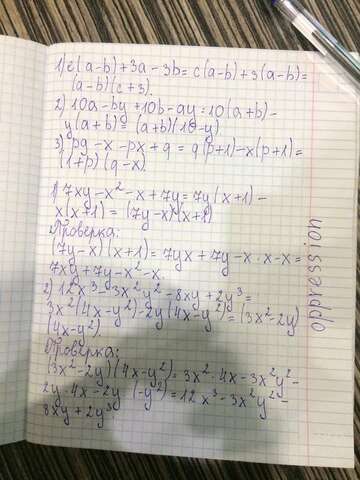 1) c(a-b)+3a-3b=c(a-b)+3(a-b)=
(a-b)(c+3).
2) 10a-by+10b-ay=10(a+b)-
y(a+b)=(a+b)(10-y)
3) pq-x-px+q=q(p+1)-x(p+1)=
(1+p)(q-x).
1) 7xy-x²-x+7y=7y(x+1)-
x(x+1)=(7y-x)(x+1)
Проверка:
(7y-x)(x+1)=7yx+7y-x·x-x=
7xy+7y-x²-x.
2) 12x³-3x²y²-8xy+2y³=
3x²(4x-y²)-2y(4x-y²)=(3x²-2y)
(4x-y²)
Проверка:
(3x²-2y)(4x-y²)=3x²·4x-3x²y²-
2y·4x-2y·(-y²)=12x³-3x²y²-
8xy+2y³
oppression